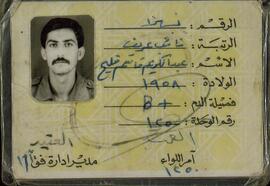 الرقم :
الرتبة : نائب عريف
الاسم : عبدالكريم قاسم فليح
الولادة : ١٩٥٨
فصيلة الدم : B+
رقم الوحدة : ١٢٥٠
العقيد
مدير ادارة فق
آمر اللواء
١٢٥٠